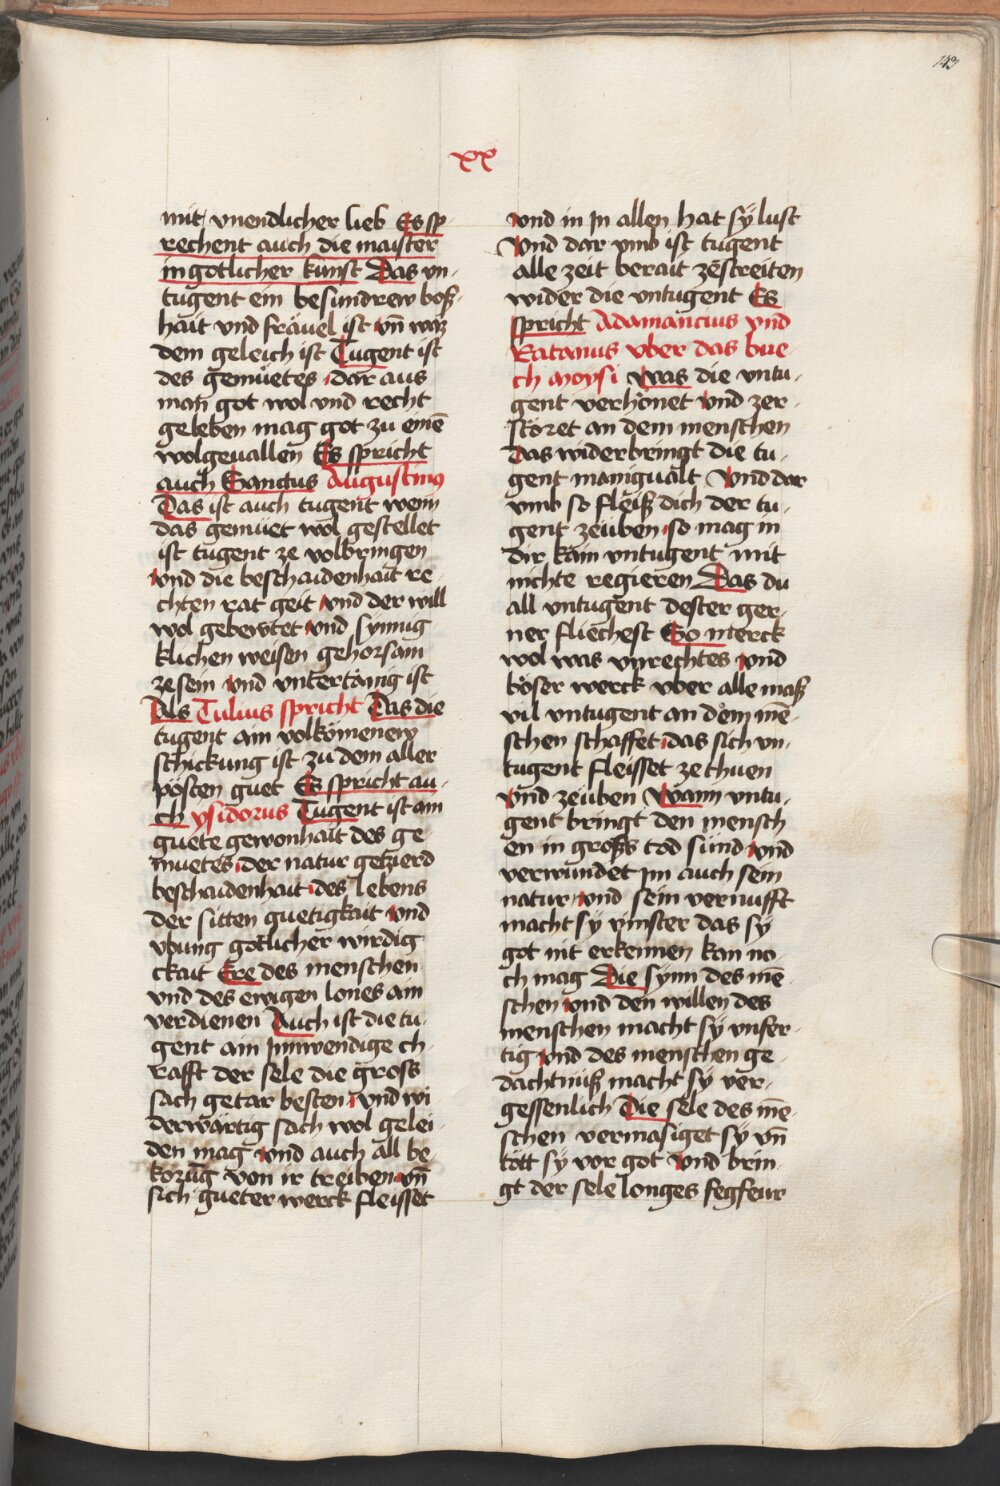 143
xx
mit vnendlicher lieb Es sp-
rechent auch die maister
in gotlicher kunst Das vn-
tugent ein besundrew boß-
hait vnd frävel ist vn̄ waz
dem geleich ist Tugent ist
des gemüetes dar aus
man got wol vnd recht
geleben mag got zu einē
wolgeuallen Es spricht
auch Sanctus Augustinus
Das ist auch tugent wenn
das gemüet wol gestellet
ist tugent ze volbringen
vnd die beschaidenhait re
chten rat geit vnd der will
wol geberwtet vnd synnig
klichen weisen gehorsam
ze sein vnd vntertänig ist
Als Tulius spricht Das die
tugent ain volkömenew
schickung ist zu dem aller
pösten guet Es spricht au-
ch ysidorus Tugent ist ain
guete gewonhait des ge
muetes der natur getzierd
beschaidenhait des lebens
der sitten guetigkait vnd
vbung götlicher wirdig
ckait Ere des menschen
vnd des ewigen lones ain
verdienen Auch ist die tu-
gent ain Innwendige ch-
rafft der sele die gross
sach getar besten vnd wi
derwärtig sach wol gelei-
den mag vnd auch all be-
korūg von ir treiben vn̄
sich gueter werck fleisset
vnd in Jn allen hat sÿ lust
Vnd dar vmb ist tugent
alle zeit berait zestreiten
wider die vntugent Es
spricht Adamancius vnd
Ratanus vber das bue-
ch moysi Was die vntu-
gent verhönet vnd zer-
störet an dem menschen
Das widerbringt die tu-
gent manigualt Vnd dar
vmb so fleiß dich der tu-
gent zeüben so mag in
dir käin vntugent mit
nichte regieren Das du
all vntugent dester ger-
ner fliechest So merck
wol was vnrechtes vnd
böser werck vber alle maß
vil vntugent an dem mē-
schen schaffet das sich vn-
tugent fleisset ze thuen
vnd zeuben Wann vntu-
gent bringt den mensch
en in gross tod sünd vnd
verwundet im auch sein
natur vnd sein vernufft
macht sÿ vinster das sÿ
got nit erkennen kan no-
ch mag Die synn des mē-
schen vnd den willen des
menschen macht sÿ vnfer-
tig vnd des menschen ge
dachtnüß macht sÿ ver-
gessenlich Die sele des mē-
schen vermasiget sÿ vn̄
tött sÿ vor got Vnd brin-
gt der sele longes fegfeur